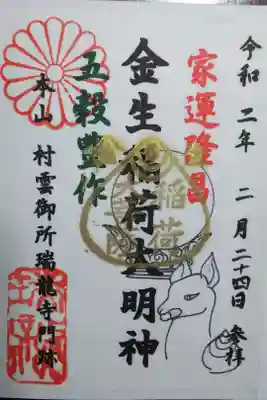 令和二年 二月二十四日 参拝
家運隆昌
金生稲荷大明神
五穀豊作
本山 村雲御所瑞龍寺門跡